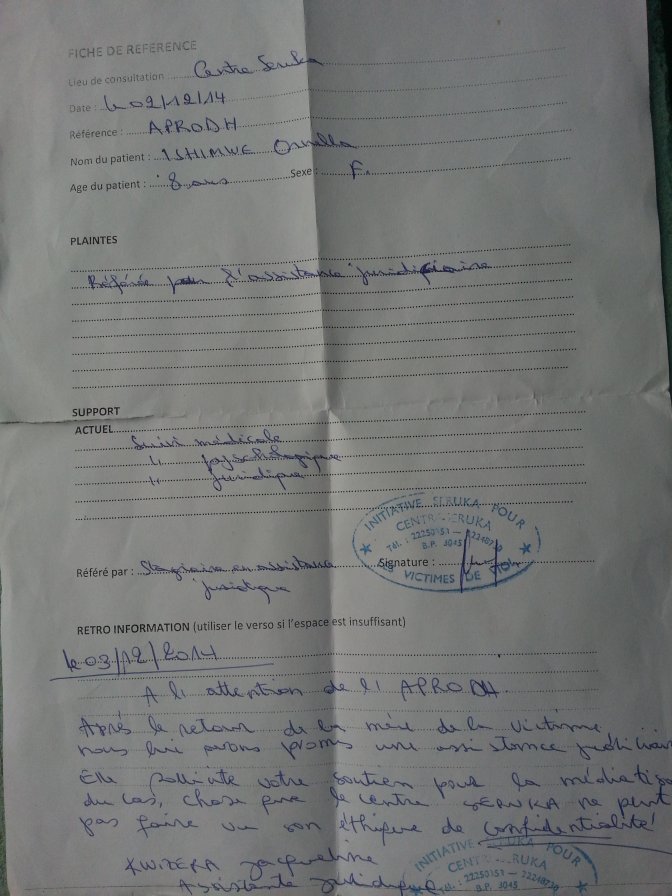 FICHE DE REFERENCE
Lieu de consultation Centre Seruka
Date : le 02/12/14
Référence : APRODH
Nom du patient : ISHIMWE Ornella
Age du patient : 8 ans Sexe : F.
PLAINTES
Référée pour l'assistance juridiciaire
SUPPORT
ACTUEL Suivi médicale
" psychologique
" juridique
INITIATIVE SERUKA POUR
CENTRE SERUKA
Tél. : 22250151 — 22248739
B.P. 3045
VICTIMES DE
Référé par : Stagiaire en assistance Signature :
juridique
RETRO INFORMATION (utiliser le verso si l'espace est insuffisant)
le 03/12/2014
A l'attention de l'APRODH.
Après le retour de la mère de la victime
nous lui avons promis une assistance judiciaire
Elle sollicite votre soutien pour la médiatisa
du cas, chose que le centre SERUKA ne peut
pas faire vu son éthique de confidentialité
KWIZERA Jacqueline
Assistante juridique
INITIATIVE SERUKA POUR
CENTRE SERUKA
Tél. : 22250151 — 22248739
B.P. 3045